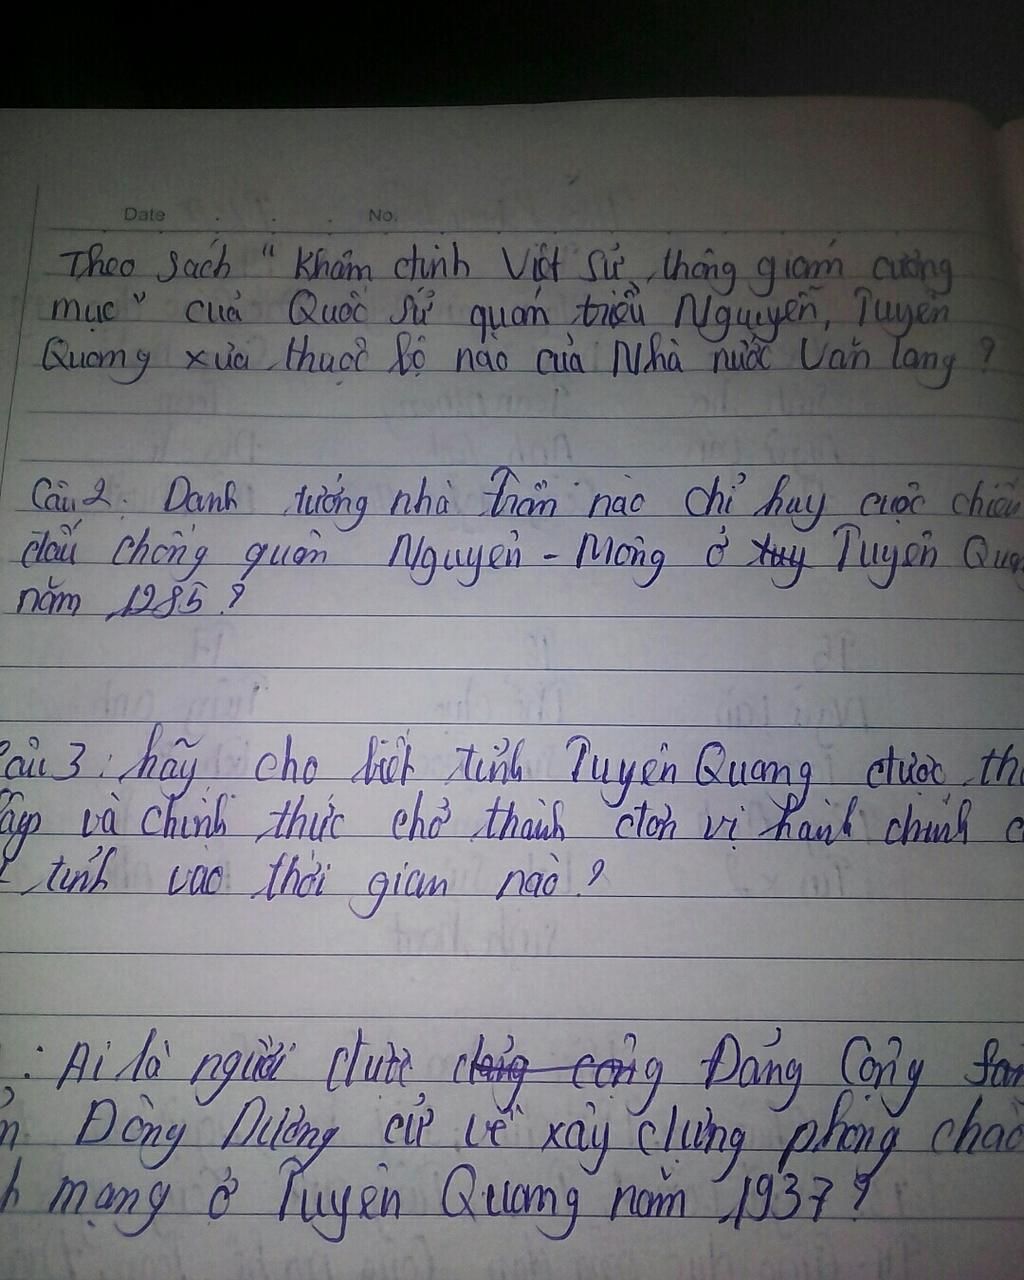 Date . . . No.
Theo sách " Khâm định Việt sử thông giám cương
mục " của Quốc sử quán triều Nguyễn, Tuyên
Quang xưa thuộc bộ nào của Nhà nước Văn lang ?
Câu 2. Danh tướng nhà Trần nào chỉ huy cuộc chiến
đấu chống quân Nguyên - Mông ở Tuyên Quang
năm 1285 ?
Câu 3 : hãy cho biết tỉnh Tuyên Quang được th
lập và chính thức chở thành đơn vị hành chính c
tỉnh vào thời gian nào ?
: Ai là người được Đảng Cộng san
n Đông Dương cử về xây dựng phong chào
h mạng ở Tuyên Quang năm 1937 ?